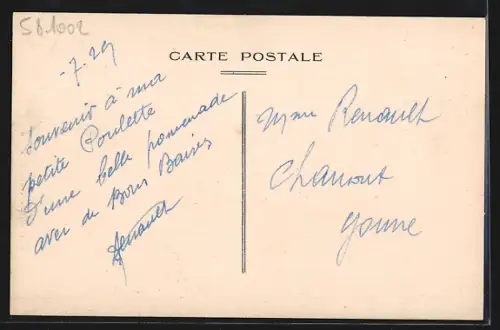 5 D.1002
CARTE POSTALE
-7.29
Souvenir à ma
petite Poulette
d'une belle promenade
avec de Bons Baisers
Renault
Mme Renault
Chaumont
Yonne